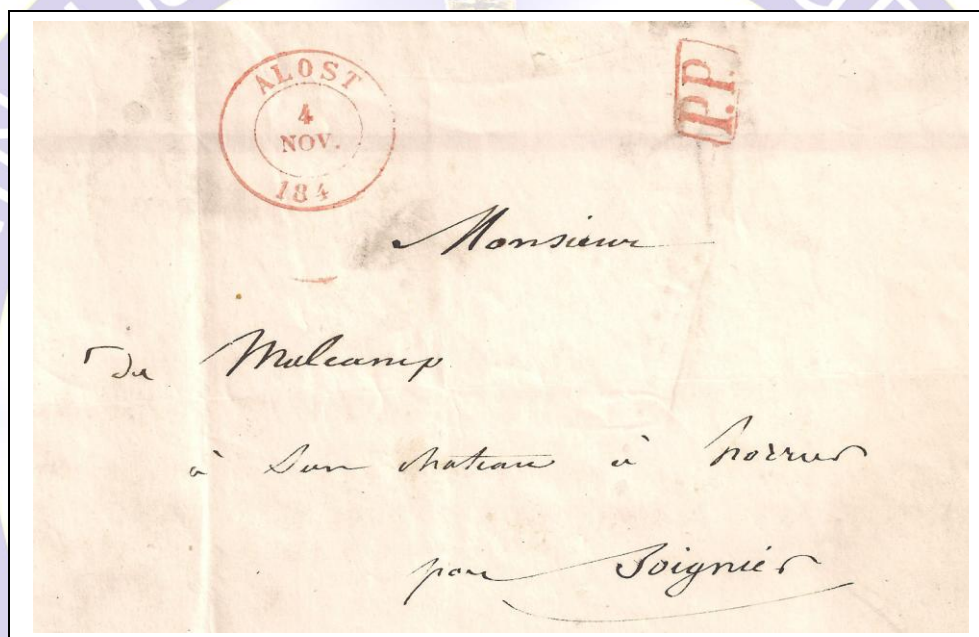 ALOST
4
NOV.
184
P.P.
Monsieur
de Malcamp
à Son chateau à horrues
par Soignies